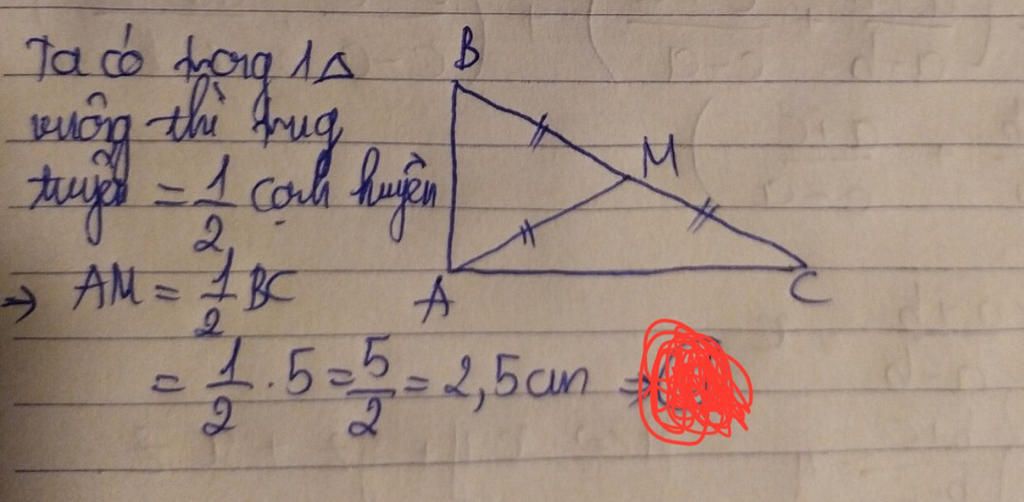 Ta có trong 1Δ
vuông thì trug
tuyến = 1/2 cạnh huyền
→ AM = 1/2 BC
= 1/2 . 5 = 5/2 = 2,5 cm ⇒
B
M
A
C